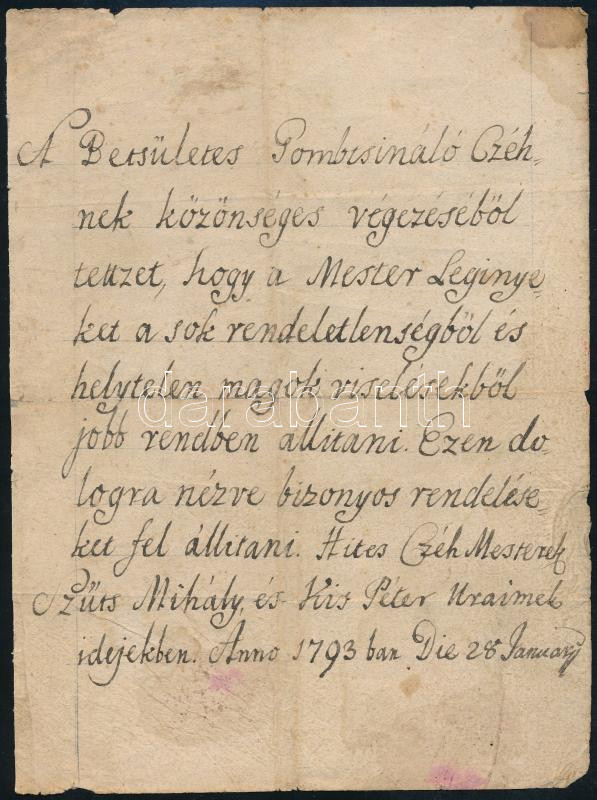 A Betsületes Gombtsináló Czéh-
nek közönséges végezéséböl
tettzet, hogy a Mester Leginye-
ket a sok rendeletlenségböl és
helytelen magok viselésekböl
jobb rendben állitani. Ezen do-
logra nézve bizonyos rendelése-
ket fel állitani. Hites Czéh Mesterek
Szüts Mihály, és Kis Péter Uraimek
idejekben. Anno 1793 ban Die 28 Januarij
darabanth